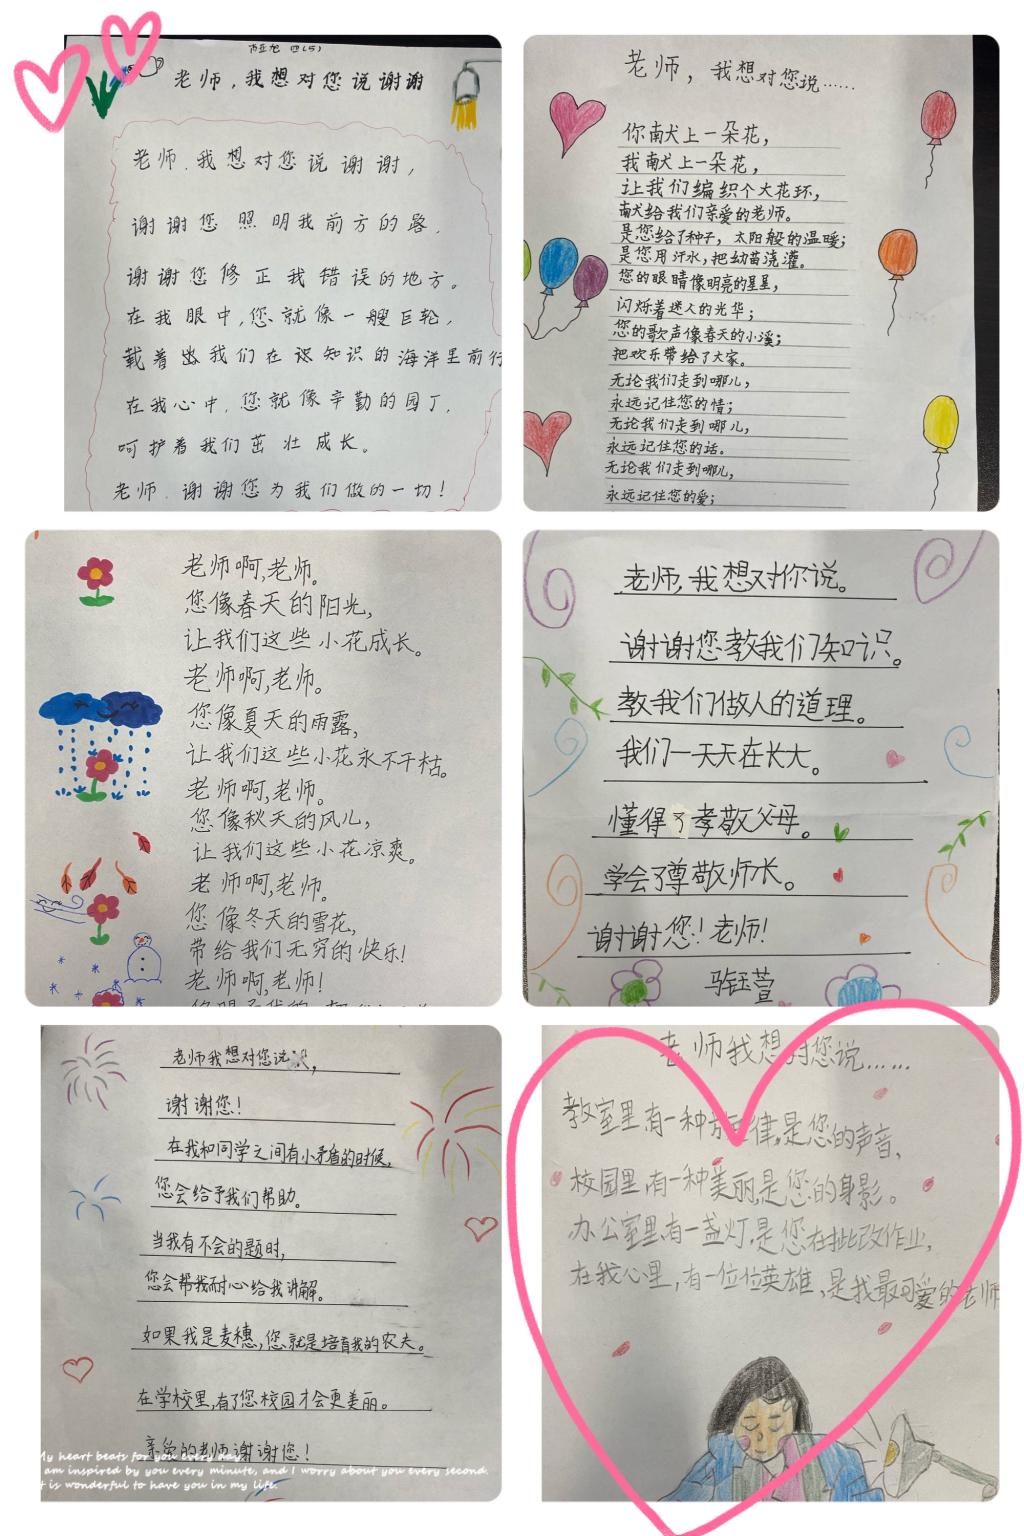 四(5)
老师,我想对您说谢谢
老师.我想对您说谢谢,
谢谢您照明我前方的路.
谢谢您修正我错误的地方。
在我眼中,您就像一艘巨轮,
载着我们在知识的海洋里前行
在我心中,您就像辛勤的园丁,
呵护着我们茁壮成长。
老师.谢谢您为我们做的一切!
老师,我想对您说……
你献上一朵花,
我献上一朵花,
让我们编织个大花环,
献给我们亲爱的老师。
是您给了种子,太阳般的温暖;
是您用汗水,把幼苗浇灌。
您的眼睛像明亮的星星,
闪烁着迷人的光华;
您的歌声像春天的小溪;
把欢乐带给了大家。
无论我们走到哪儿,
永远记住您的情;
无论我们走到哪儿,
永远记住您的话。
无论我们走到哪儿,
永远记住您的爱;
老师啊,老师。
您像春天的阳光,
让我们这些小花成长。
老师啊,老师。
您像夏天的雨露,
让我们这些小花永不干枯。
老师啊,老师。
您像秋天的风儿,
让我们这些小花凉爽。
老师啊,老师。
您像冬天的雪花,
带给我们无穷的快乐!
老师啊,老师!
老师,我想对你说。
谢谢您教我们知识。
教我们做人的道理。
我们一天天在长大。
懂得了孝敬父母。
学会了尊敬师长。
谢谢您!老师!
马钰萱
老师我想对您说,
谢谢您!
在我和同学之间有小矛盾的时候,
您会给予我们帮助。
当我有不会的题时,
您会帮我耐心给我讲解。
如果我是麦穗,您就是培育我的农夫。
在学校里,有了您校园才会更美丽。
亲爱的老师谢谢您!
My heart beats for you every day.
am inspired by you every minute, and I worry about you every second.
t is wonderful to have you in my life.
老师我想对您说……
教室里有一种旋律,是您的声音,
校园里,有一种美丽,是您的身影。
办公室里,有一盏灯,是您在批改作业,
在我心里,有一位位英雄,是我最可爱的老师